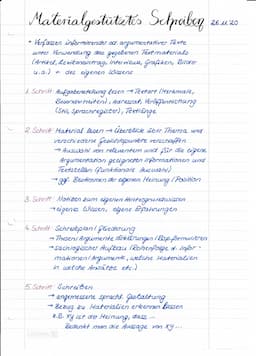 Materialgestütztes Schreiben 26.11.20
• Verfassen informierender od. argumentativer Texte
unter Verwendung des gegebenen Textmaterials
(Artikel, Lexikoneintrag, Interviews, Grafiken, Bilder
u.a.) + des eigenen Wissens
1. Schritt: Aufgabenstellung lesen → Textart (Merkmale,
Besonderheiten), Adressat, Veröffentlichung
(Stil, Sprachregister), Textlänge
2. Schritt: Material lesen → Überblick über Thema und
verschiedene Gesichtspunkte verschaffen
→ Auswahl von relevanten und für die eigene
Argumentation geeigneten Informationen und
Textstellen (funktionale Auswahl)
→ ggf. Bestimmen der eigenen Meinung / Position
3. Schritt: Notizen zum eigenen Hintergrundwissen
→ eigenes Wissen, eigene Erfahrungen
4. Schritt: Schreibplan / Gliederung
→ Thesen / Argumente
→ Aufbau (Reihenfolge d. Infor-
mationen / Argumente, welche Materialien
in welche Ansätze etc.)
5. Schritt: Schreiben
→ angemessene sprachl. Gestaltung
→ Bezug zu Materialien erkennen lassen
z.B. XY ist der Meinung, dass ...
man die Aussage von XY ...